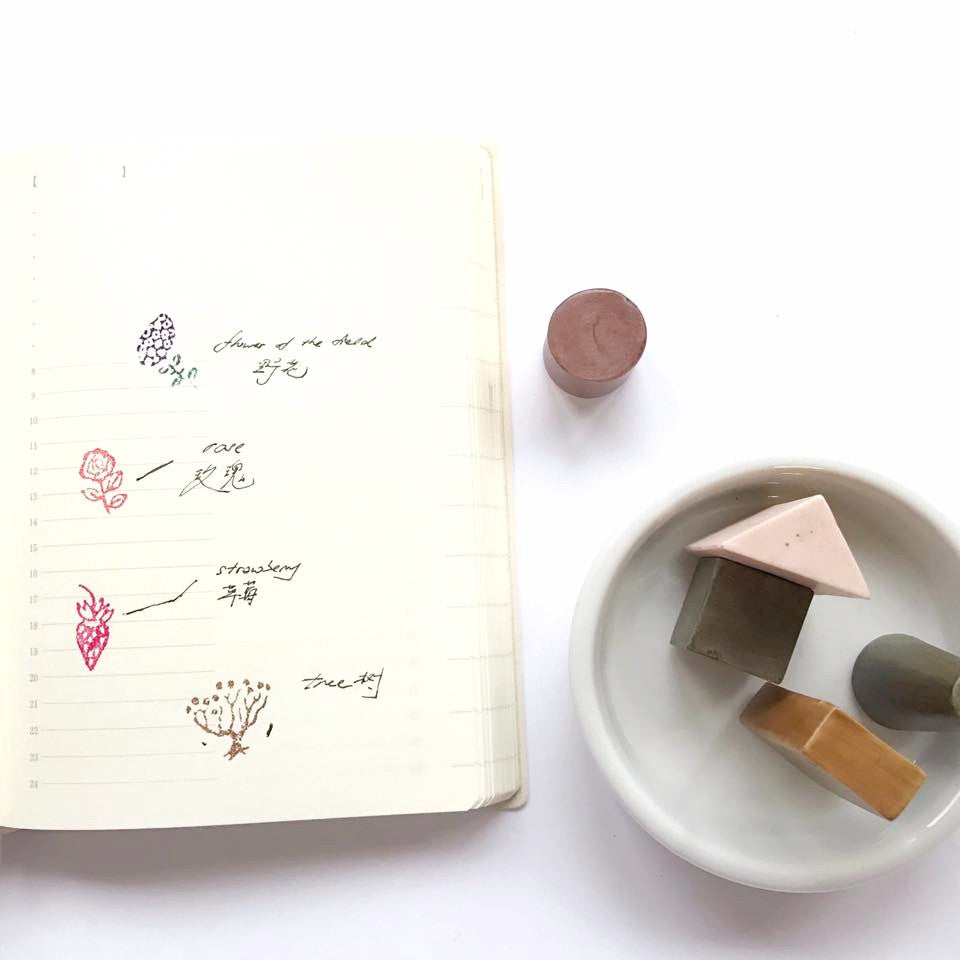 【 】
8
flower of the field
野花
9
10
11
rose
12
玫瑰
13
14
15
16
strawberry
17
草莓
18
19
20
tree 树
21
22
23
24